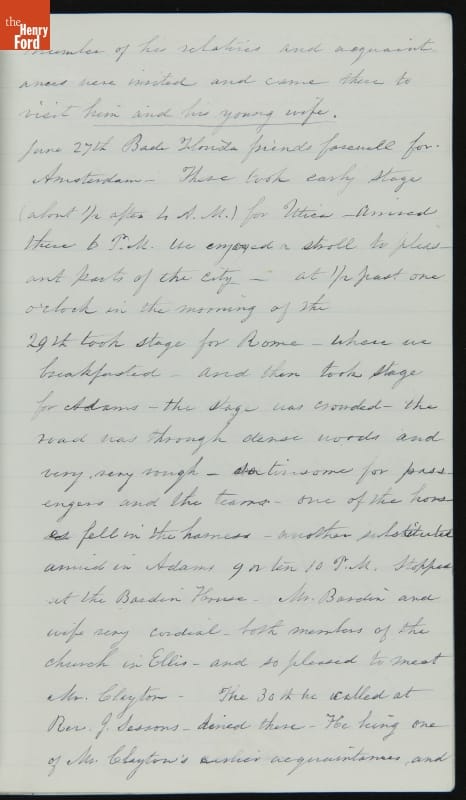 the
Henry
Ford
number of his relatives and acquaint
ances were invited and came there to
visit him and his young wife.
June 27th Bade Florida friends farewell for
Amsterdam - There took early stage
(about 1/2 after 4 A.M.) for Uttica - arrived
there 6 P.M. We enjoyed a stroll to pleas-
ant parts of the city - at 1/2 past one
o'clock in the morning of the
29th took stage for Rome - where we
breakfasted - and then took stage
for Adams - the stage was crowded - the
road was through dense woods and
very, very rough - tiresome for pass-
engers and the teams - one of the hors
es fell in the harness - another substituted
arrived in Adams 9 or ten 10 P.M. Stopped
at the Bardin House - Mr. Bardin and
wife very cordial - both members of the
church in Ellis - and so pleased to meet
Mr. Clayton - The 30th he called at
Rev. J. Sessons - dined there - He being one
of Mr. Clayton's earlier acquaintances, and